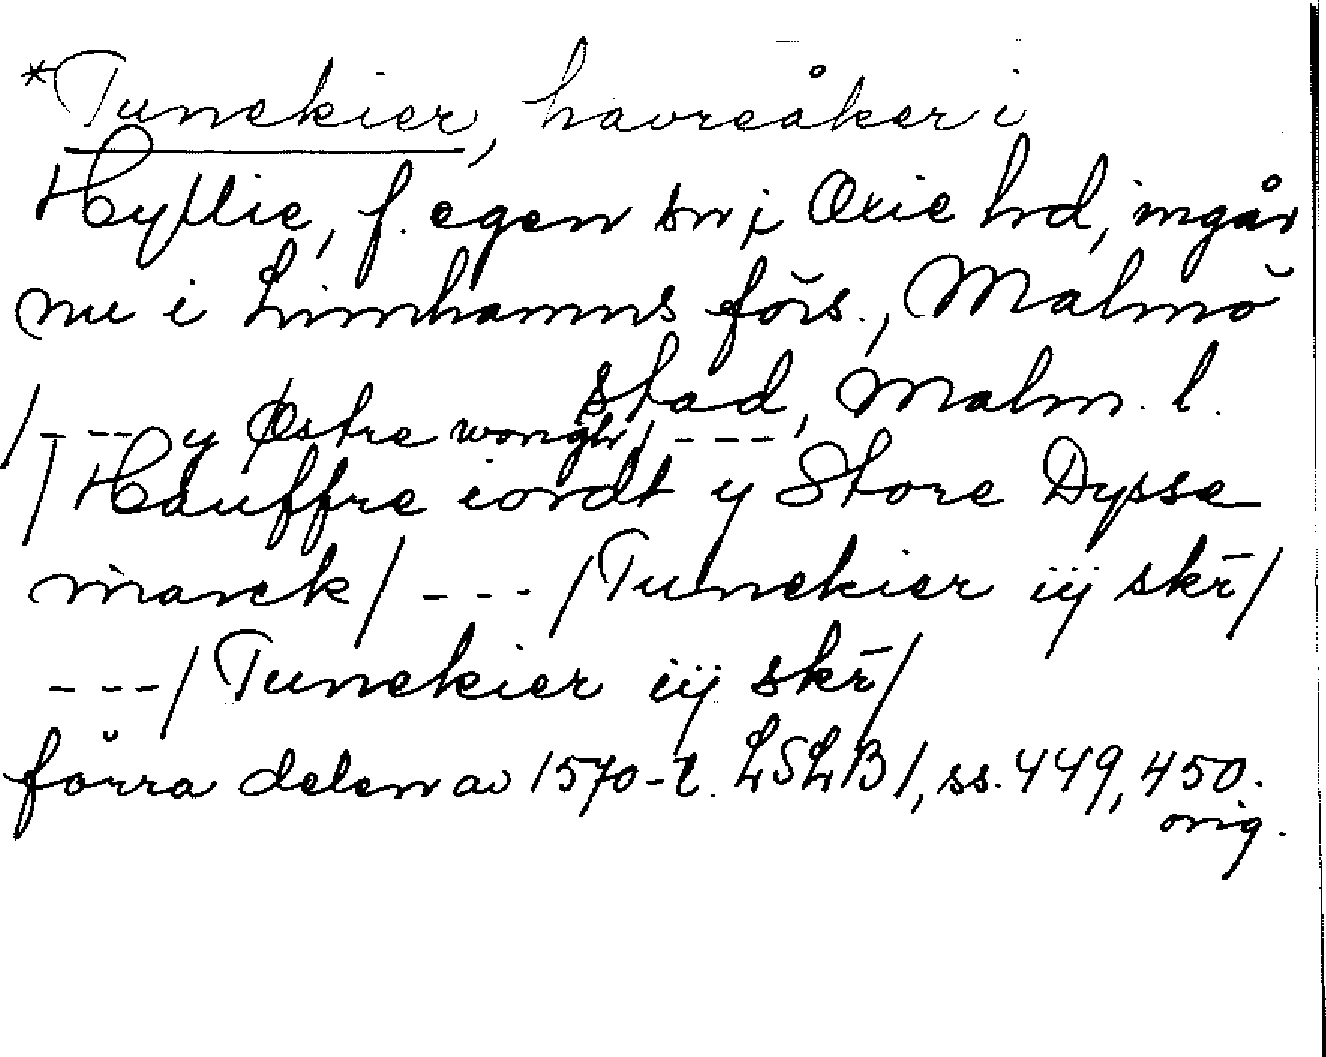 *Tunekier, havreåker i
Hyllie, f. egen sn i Oxie hd, ingår
nu i Limhamns förs., Malmö
stad, Malm. l.
/--- y Østre wongh/ ----
/Hauffre iordt y Store Dysse
marck/ --- /Tunekier iij skr̄/
---/Tunekier iij skr̄/
förra delen av 1570-t. LSLB1, ss. 449, 450.
orig.